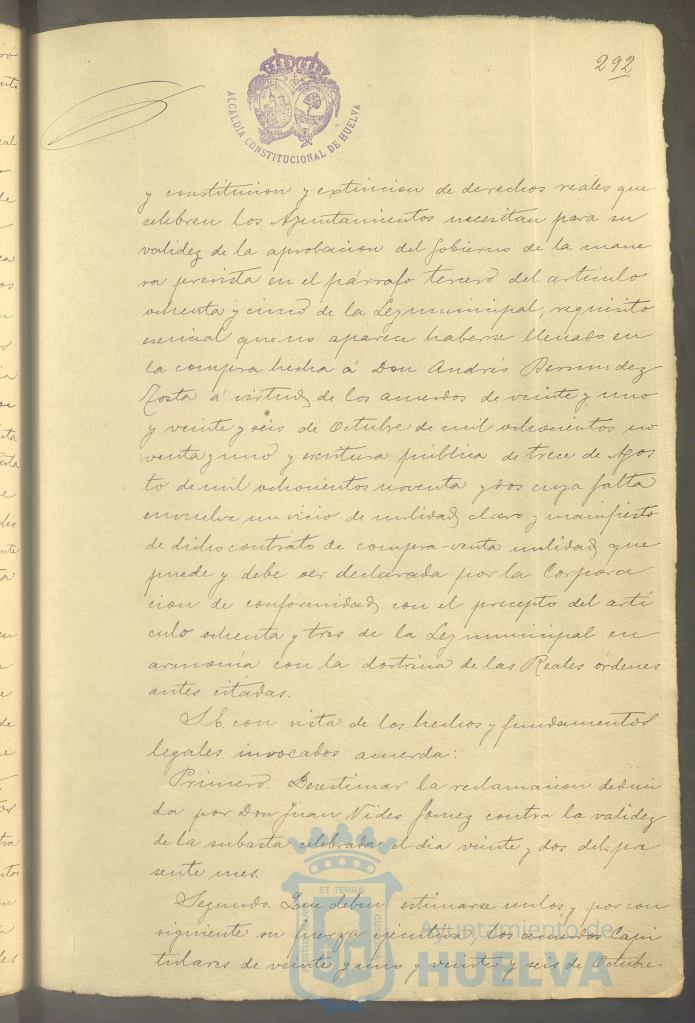 292
ALCALDÍA CONSTITUCIONAL DE HUELVA
y constitucion y extincion de derechos reales que
celebren los Ayuntamientos necesitan para su
validez de la aprobacion del Gobierno de la mane
ra prevista en el párrafo tercero del artículo
ochenta y cinco de la Ley municipal, requisito
esencial que no aparece haberse llenado en
la compra hecha á Don Andrés Bermudez
á virtud de los acuerdos de veinte y uno
y veinte y seis de Octubre de mil ochocientos no
venta y uno y escritura pública de trece de Agos
to de mil ochocientos noventa y dos cuya falta
envuelve un vicio de nulidad claro y manifiesto
de dicho contrato de compra-venta nulidad que
puede y debe ser declarada por la Corpora
cion de conformidad con el precepto del artí
culo ochenta y tres de la Ley municipal en
armonía con la doctrina de las Reales órdenes
antes citadas.
S.E. con vista de los hechos y fundamentos
legales invocados acuerda:
Primero. Desestimar la reclamacion deduci
da por Don Juan Vides Gomez contra la validez
de la subasta celebrada el dia veinte y dos del pre
sente mes.
Segundo. Que deben estimarse nulos y por con
siguiente su fuerza ejecutiva, los acuerdos Capi
tulares de veinte y uno y veinte y seis de Octubre
ET TERRÆ
Ayuntamiento de
HUELVA